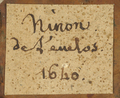 Ninon
de L'enclos.
1640.